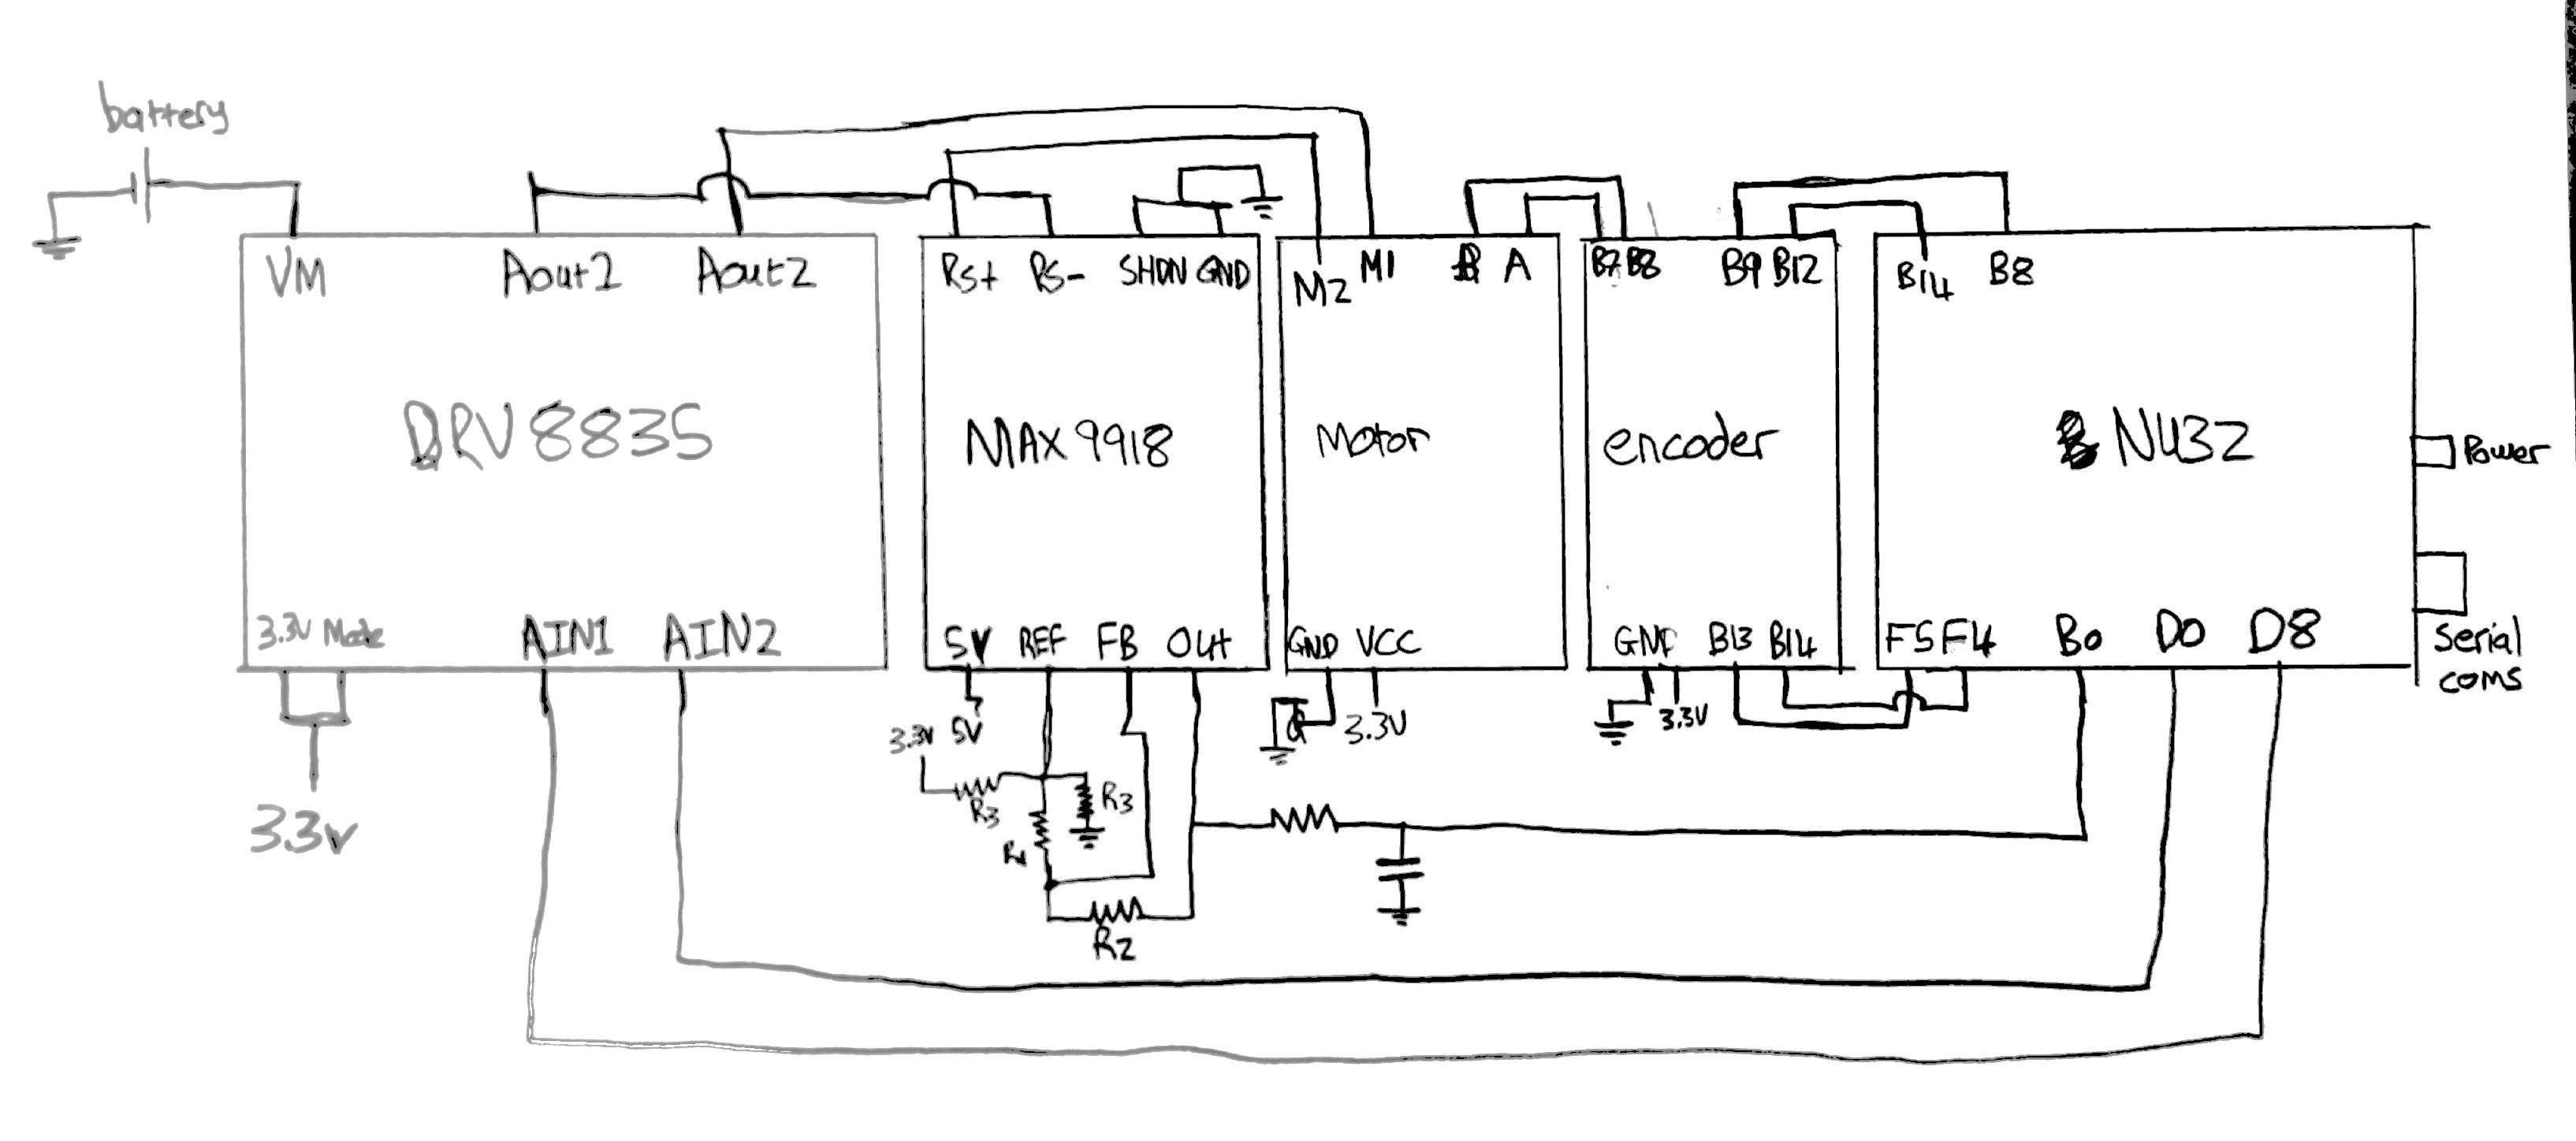 battery
VM Aout1 Aout2
DRV8835
3.3V Mode AIN1 AIN2
3.3V
RS+ RS- SHDN GND
MAX9918
5V REF FB OUT
3.3V 5V
R3
R3
R1
R2
M2 M1 B A
Motor
GND VCC
3.3V
B7 B8 B9 B12
encoder
GND B13 B14
3.3V
B14 B8
NU32
F5 F4 B0 D0 D8
Power
Serial
coms